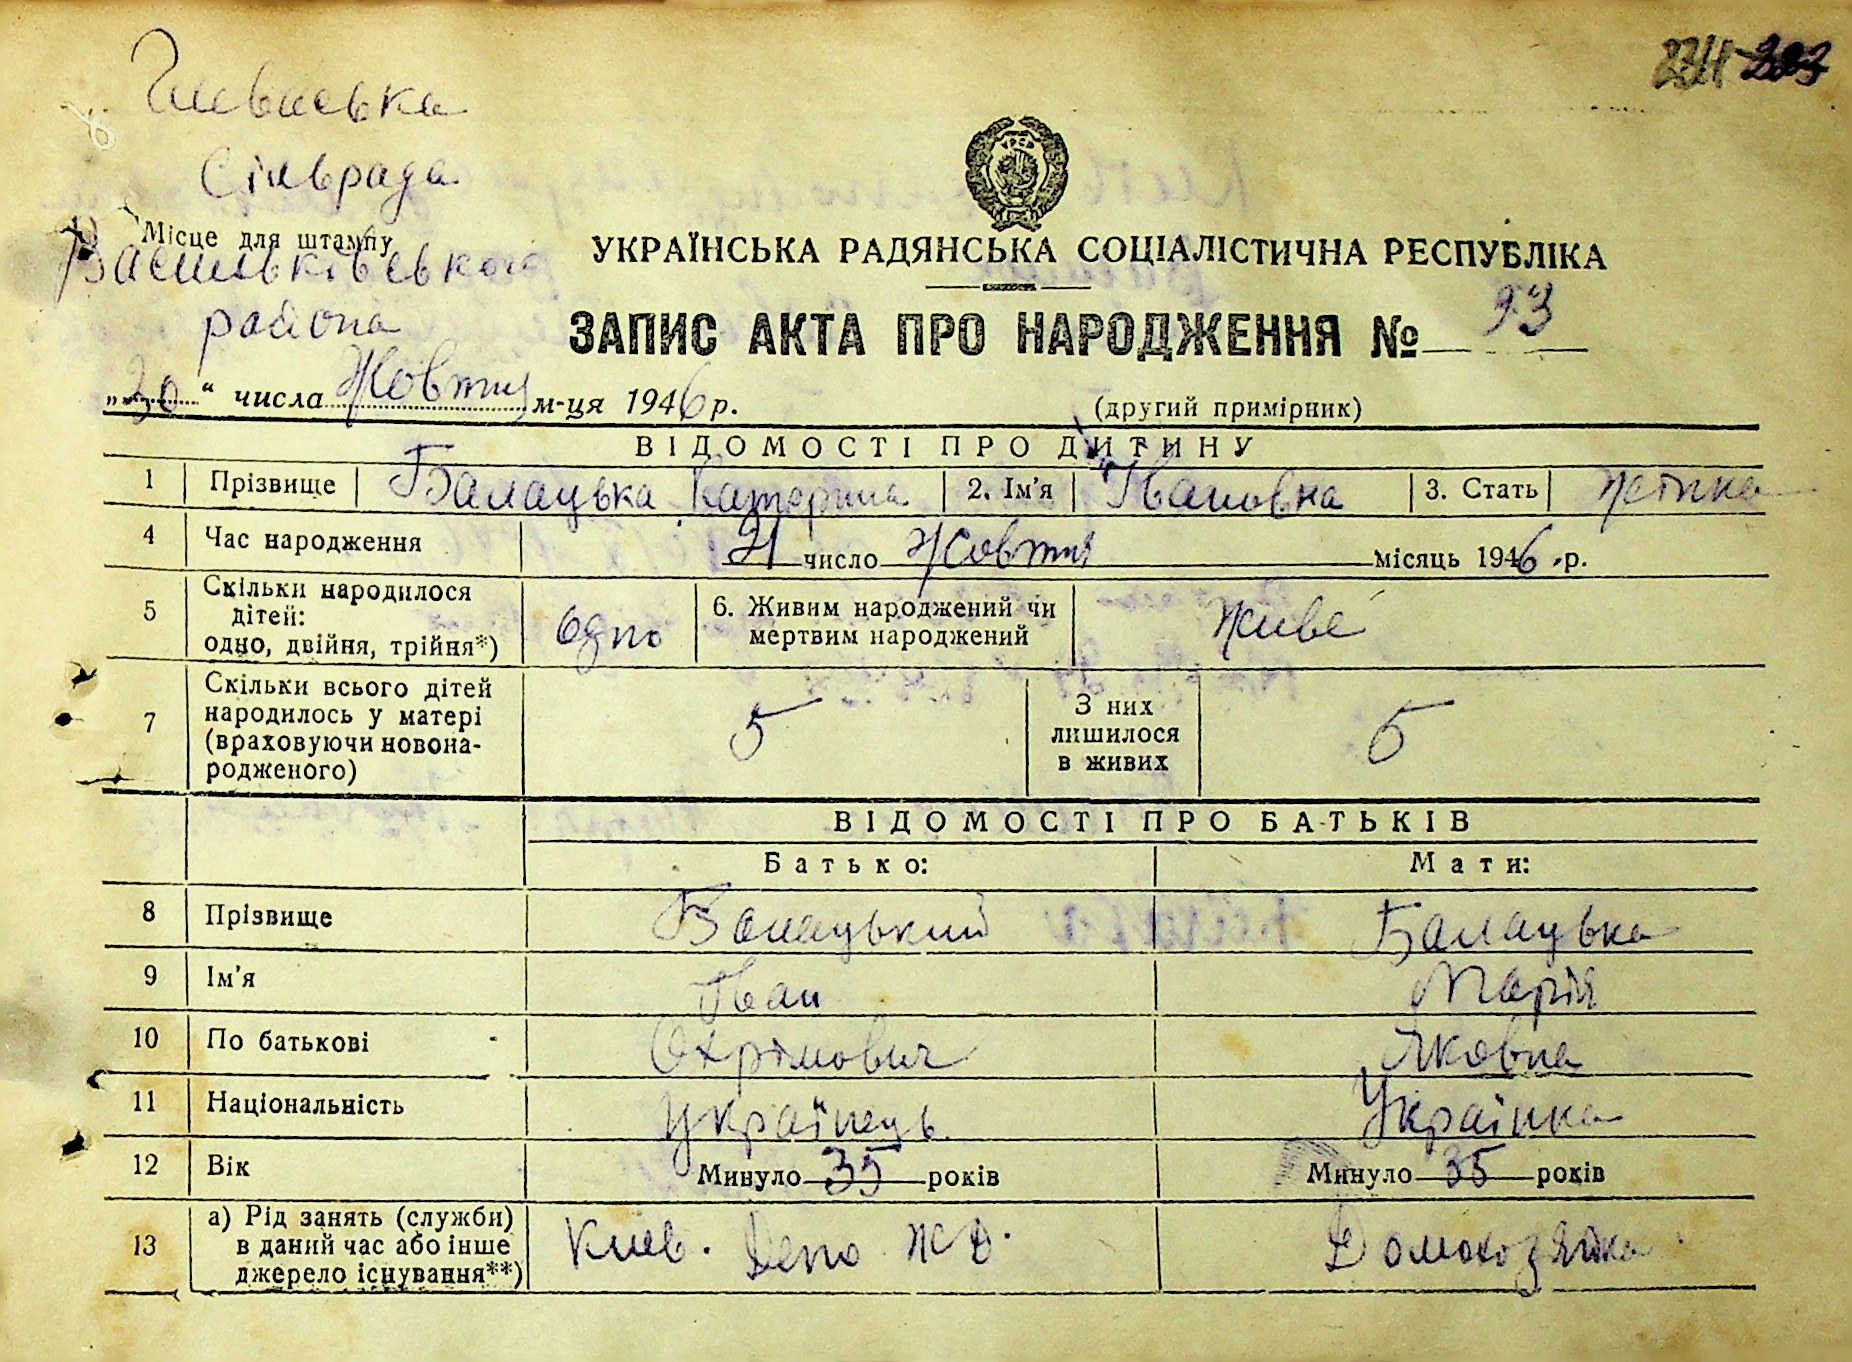 Гливаська
Сільрада
Місце для штампу
Васильківського
района
УРСР
УКРАЇНСЬКА РАДЯНСЬКА СОЦІАЛІСТИЧНА РЕСПУБЛІКА
ЗАПИС АКТА ПРО НАРОДЖЕННЯ № 93
„30“ числа Жовтня м-ця 1946 р.
(другий примірник)
ВІДОМОСТІ ПРО ДИТИНУ
1 Прізвище Балацька Катерина 2. Ім'я Івановна 3. Стать
4 Час народження 21 число Жовтня місяць 1946 р.
5 Скільки народилося дітей: одно, двійня, трійня*) одно 6. Живим народжений чи мертвим народжений живе
7 Скільки всього дітей народилось у матері (враховуючи новонародженого) 5 З них лишилося в живих 5
ВІДОМОСТІ ПРО БАТЬКІВ
Батько: Мати:
8 Прізвище Балацький Балацька
9 Ім'я Іван Марія
10 По батькові Охрімович Яковна
11 Національність Українець Українка
12 Вік Минуло 35 років Минуло 35 років
13 а) Рід занять (служби) в даний час або інше джерело існування**) Киев. Депо ЖД. Домохозяйка